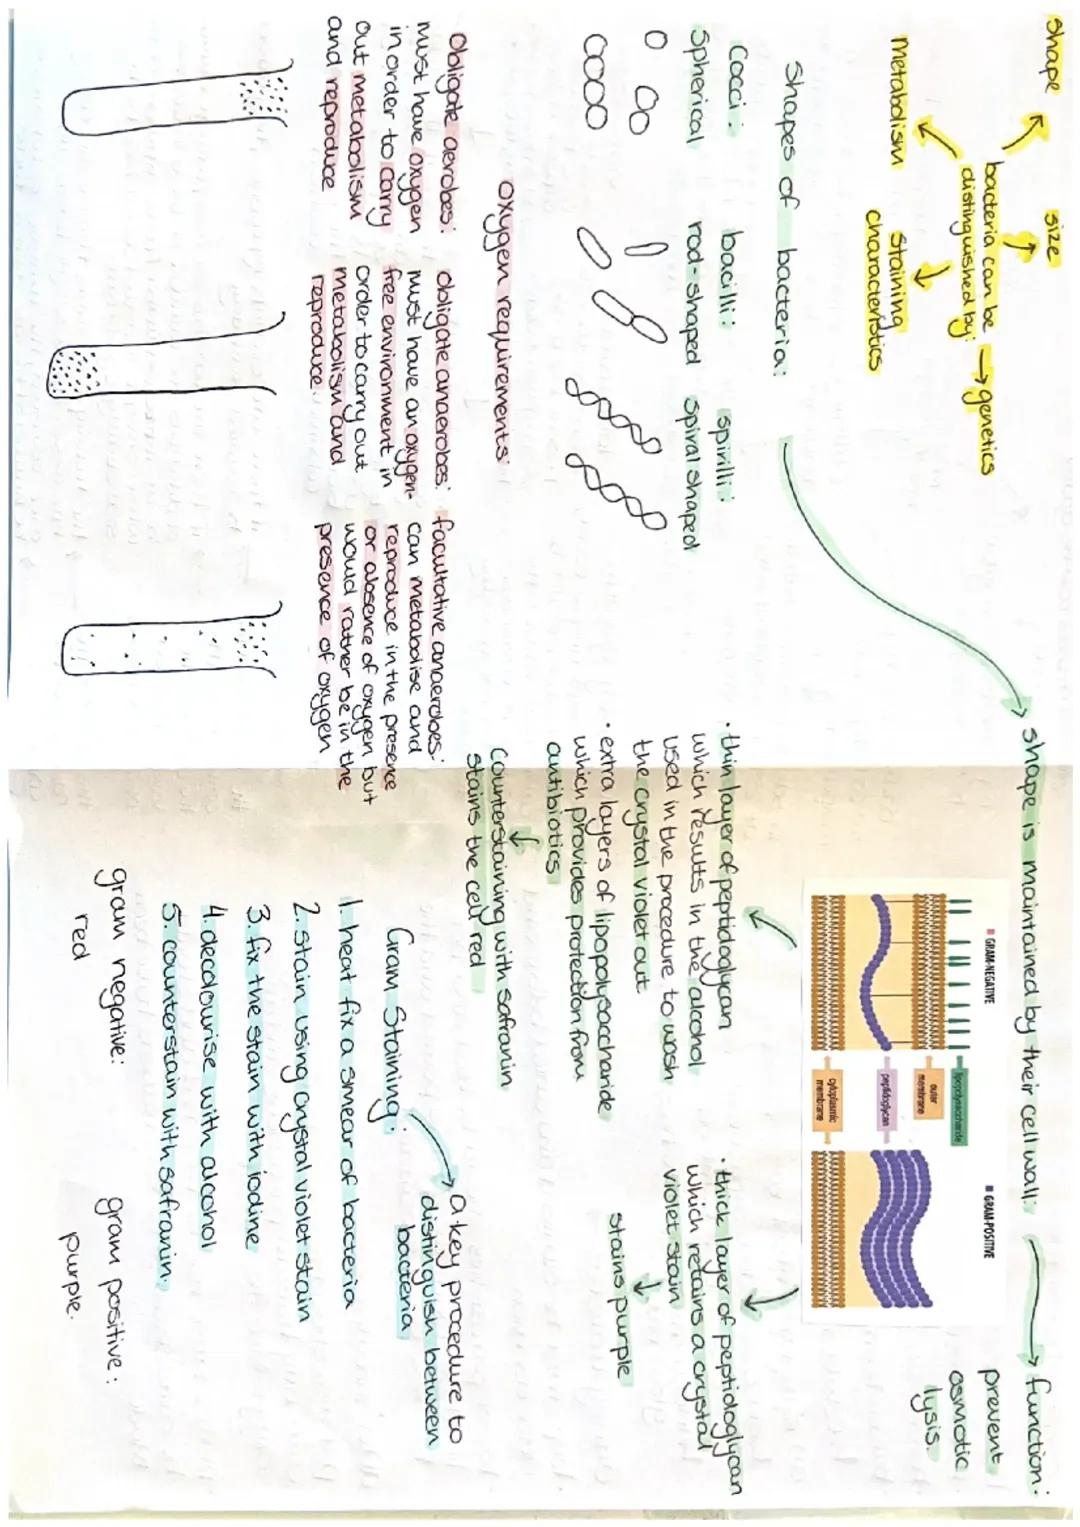 shape
size
bacteria can be
distinguished by:
genetics
metabolism
staining
characteristics
Shapes of bacteria:
Cocci:
Spherical
bacilli:
rod-shaped
spirilli:
spiral shaped
oxygen requirements:
Obligate aerobes:
must have oxygen
in order to carry
out metabolism
and reproduce
obligate anaerobes:
must have an oxygen-
free environment in
order to carry out
metabolism and
reproduce.
facultative anaerobes:
can metabolise and
reproduce in the presence
or absence of oxygen but
would rather be in the
presence of oxygen
shape is maintained by their cell wall:
function:
prevent
osmotic
lysis.
GRAM-NEGATIVE
GRAM-POSITIVE
lipopolysaccharide
outer
membrane
peptidoglycan
cytoplasmic
membrane
· thin layer of peptidoglycan
which results in the alcohol
used in the procedure to wash
the crystal violet out.
· extra layers of lipopolysaccharide
which provides protection from
antibiotics
Counterstaining with safranin
stains the cell red
· thick layer of peptidoglycan
which retains a crystal
violet stain
stains purple
Gram Staining:
a key procedure to
distinguish between
bacteria
1. heat fix a smear of bacteria
2. stain using crystal violet stain
3. fix the stain with iodine
4. decolourise with alcohol
5. counterstain with safranin.
gram negative:
red
gram positive:
purple.